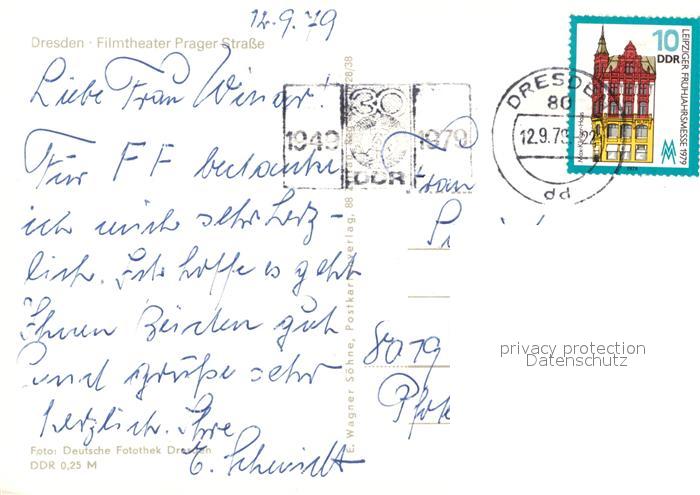 12.9.79
Dresden · Filmtheater Prager Straße
Liebe Frau
Für FF bedanke
ich mich sehr herz-
lich. Ich hoffe es geht
Ihnen beiden gut
und grüße sehr
herzlich. Ihre
E. Schmidt
Foto: Deutsche Fotothek Dresden
DDR 0,25 M
E. Wagner Söhne, Postkartenverlag, 88
28/38
30
1949 1979
DDR
DRESDEN
80
12.9.79-22
dd
10
DDR
LEIPZIGER FRÜHJAHRSMESSE 1979
Frau
8019
privacy protection
Datenschutz